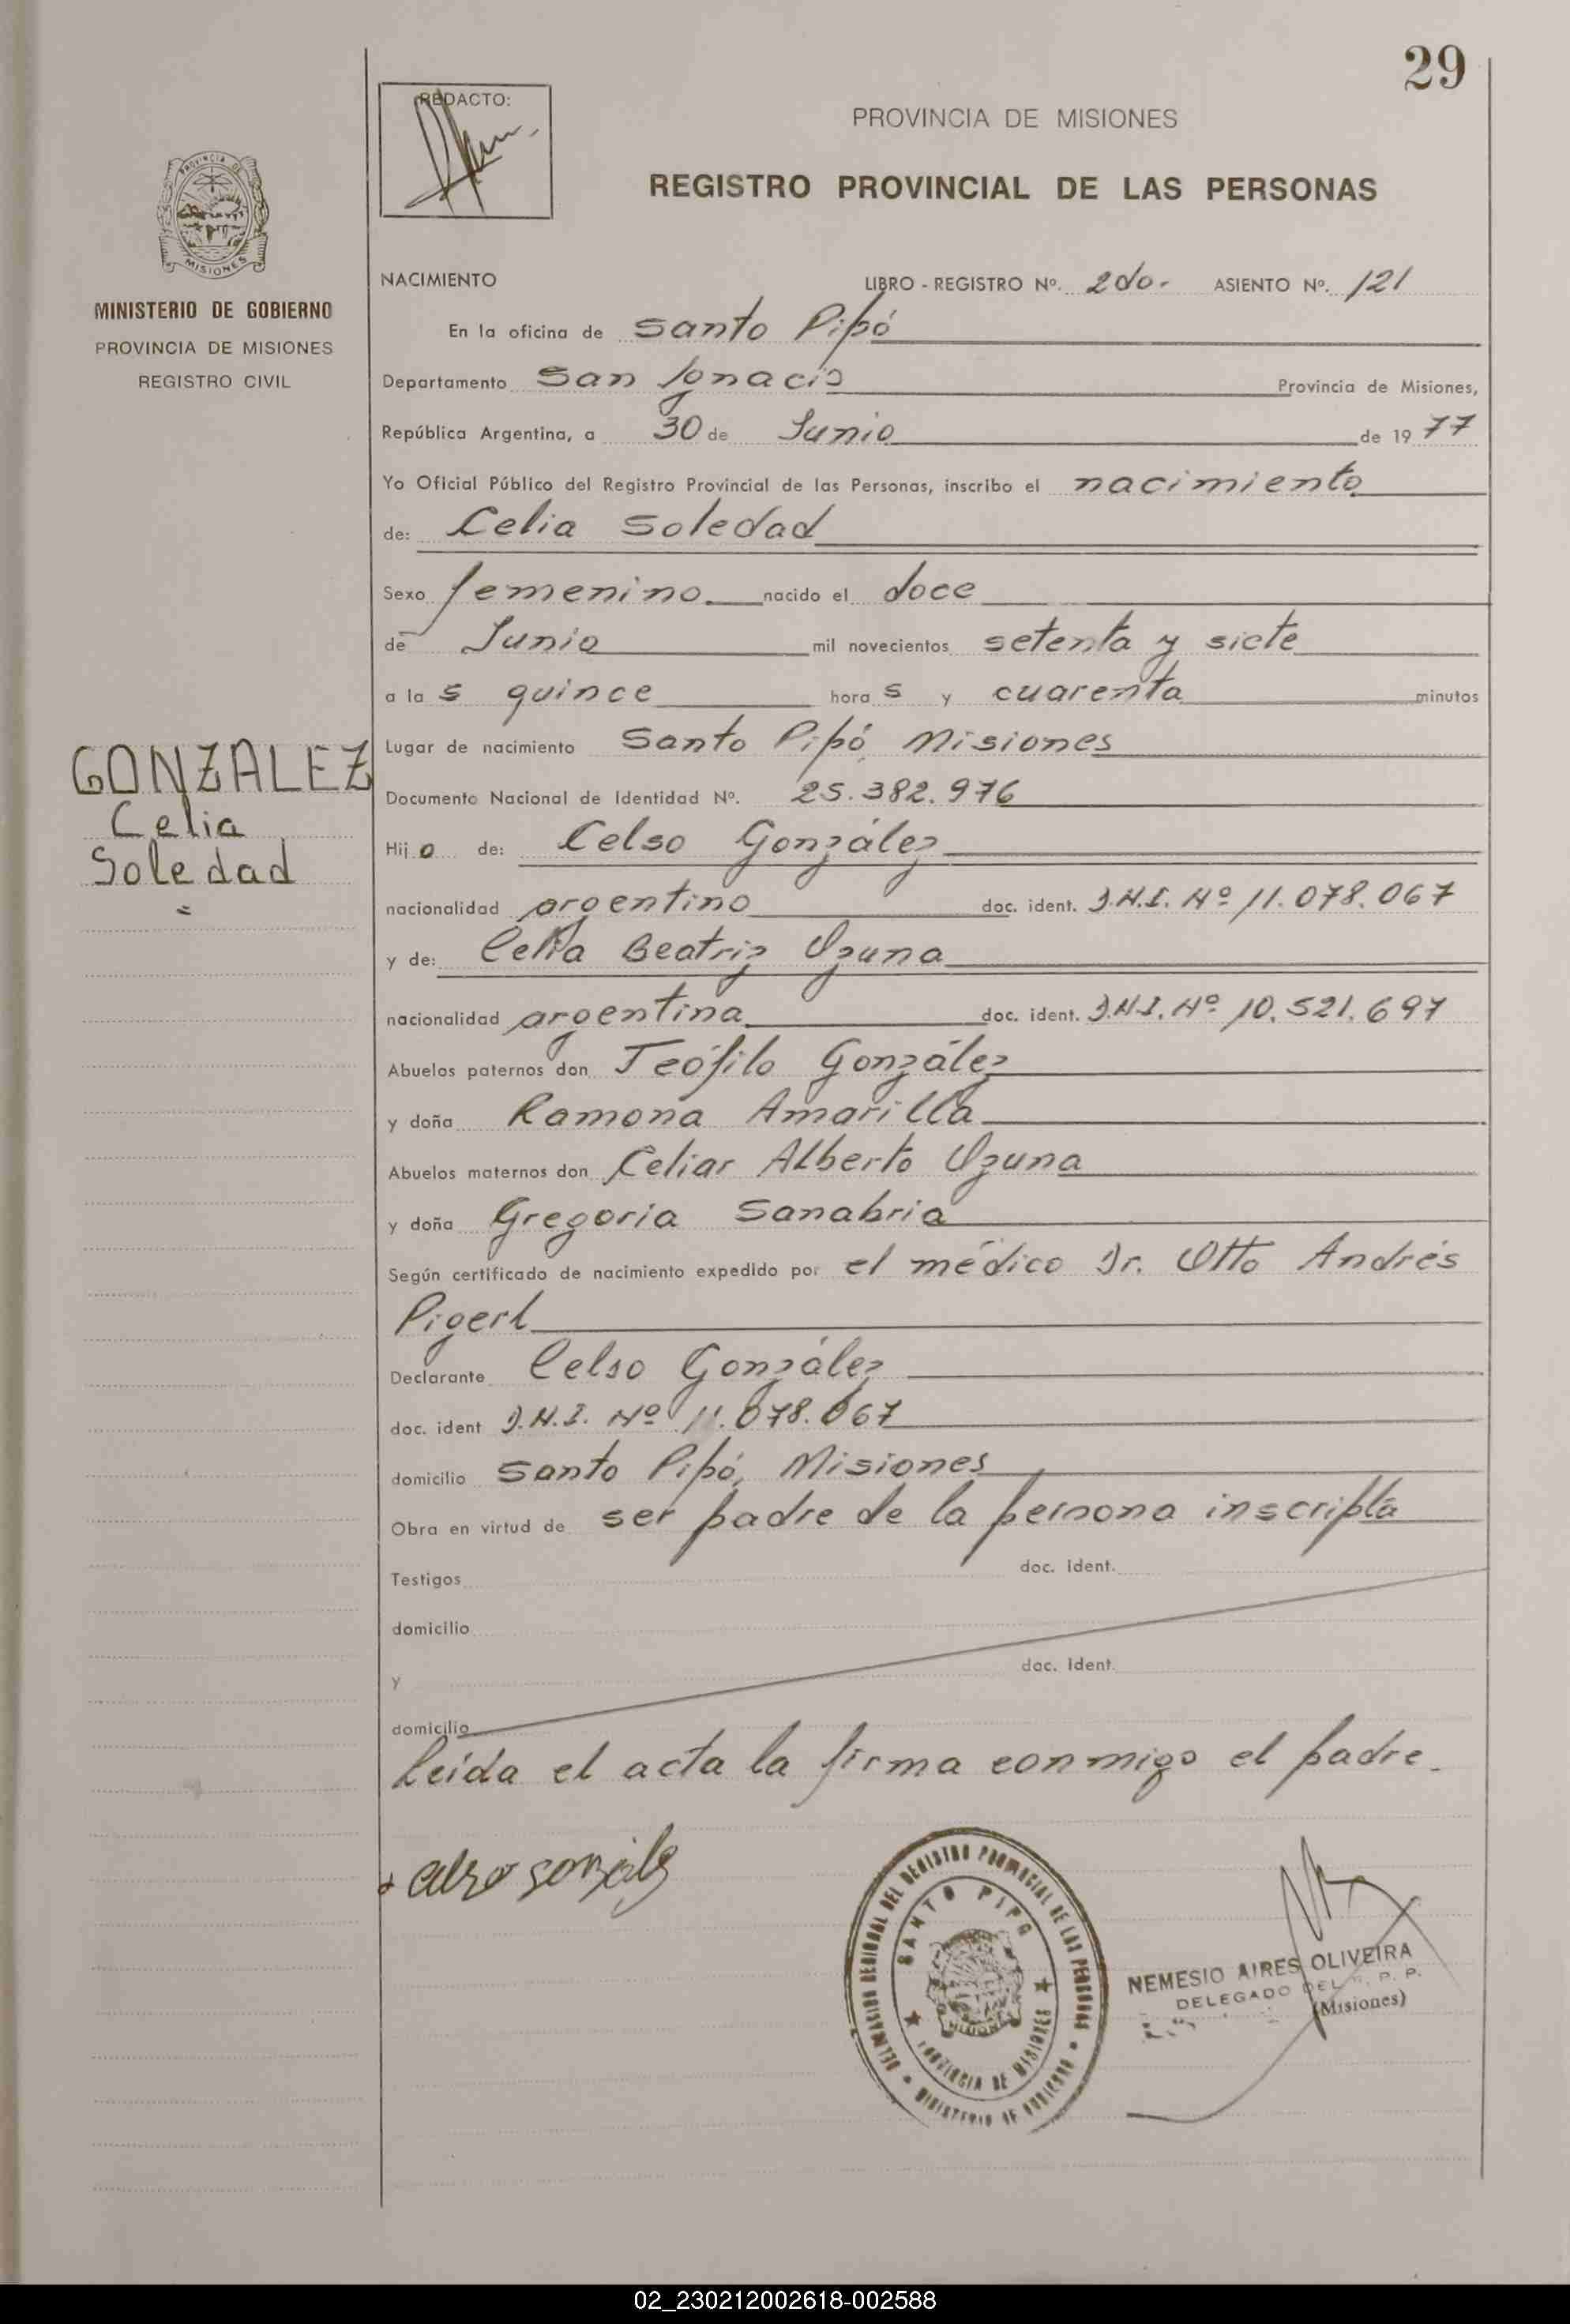 29
REDACTO:
PROVINCIA DE MISIONES
REGISTRO PROVINCIAL DE LAS PERSONAS
PROVINCIA DE
MISIONES
MINISTERIO DE GOBIERNO
PROVINCIA DE MISIONES
REGISTRO CIVIL
GONZALEZ
Celia
Soledad
NACIMIENTO LIBRO - REGISTRO Nº. 2do. ASIENTO Nº. 121
En la oficina de Santo Pipó
Departamento San Ignacio Provincia de Misiones,
República Argentina, a 30 de Junio de 1977
Yo Oficial Público del Registro Provincial de las Personas, inscribo el nacimiento
de: Celia Soledad
Sexo femenino nacido el doce
de Junio mil novecientos setenta y siete
a las quince horas y cuarenta minutos
Lugar de nacimiento Santo Pipó, Misiones
Documento Nacional de Identidad Nº. 25.382.976
Hijo de: Celso González
nacionalidad argentino doc. ident. D.N.I. Nº 11.078.067
y de: Celia Beatriz Ozuna
nacionalidad argentina doc. ident. D.N.I. Nº 10.521.697
Abuelos paternos don Teófilo González
y doña Ramona Amarilla
Abuelos maternos don Celiar Alberto Ozuna
y doña Gregoria Sanabria
Según certificado de nacimiento expedido por el médico Dr. Otto Andrés
Pigerl
Declarante Celso González
doc. ident D.N.I. Nº 11.078.067
domicilio Santo Pipó, Misiones
Obra en virtud de ser padre de la persona inscripta
Testigos doc. ident.
domicilio
y doc. ident.
domicilio
Leída el acta la firma conmigo el padre.
Celso González
DELEGACION REGIONAL DEL REGISTRO PROVINCIAL DE LAS PERSONAS
MINISTERIO DE GOBIERNO
SANTO PIPO
PROVINCIA DE MISIONES
NEMESIO AIRES OLIVEIRA
DELEGADO DEL R. P. P.
(Misiones)
02_230212002618-002588